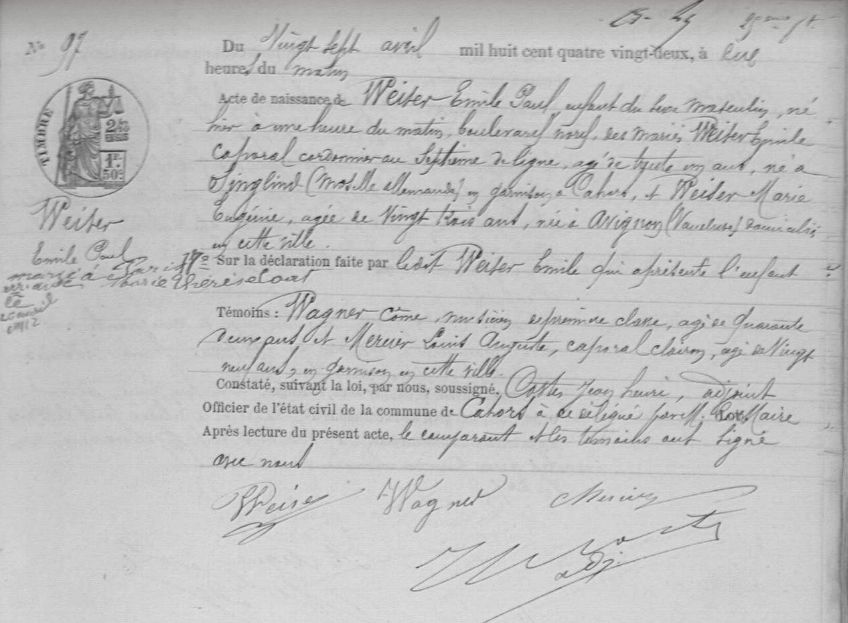 No 97
Du Vingt sept avril mil huit cent quatre vingt-deux, à
heures du matin
Acte de naissance de Weiter Emile Paul, enfant du sexe masculin, né
hier à une heure du matin, boulevard nord, des mariés Weiter Emile
caporal cordonnier au Septième de ligne, agé de trente un ans, né à
(Moselle allemande) en garnison à Cahors, et Weiter Marie
Eugénie, agée de Vingt trois ans, née à Avignon (Vaucluse) domiciliés
en cette ville.
Sur la déclaration faite par ledit Weiter Emile qui a présenté l'enfant
Témoins : Wagner Côme, musicien de première classe, agé de Quarante
deux ans et Mercier Louis Auguste, caporal clairon, agé de Vingt
neuf ans, en garnison en cette ville.
Constaté, suivant la loi, par nous, soussigné, Jean henri, adjoint
Officier de l'état civil de la commune de Cahors à ce délégué par M. Maire
Après lecture du présent acte, le comparant et les témoins ont signé
avec nous
TIMBRE
2/10
EN SUS
1F
50c
Weiter
Emile Paul
marié à Paris 17e
arr
Marie Thérèse
le
1912
Wagner
Mercier
adj.